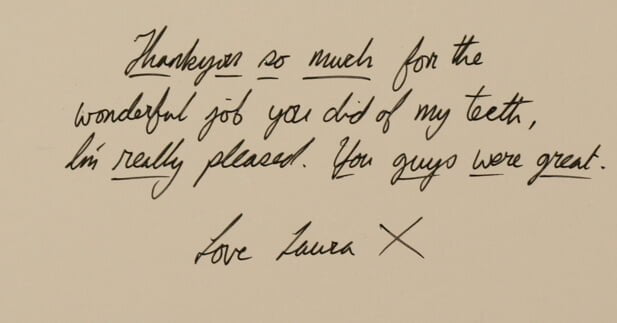 Thankyou so much for the
wonderful job you did of my teeth,
I'm really pleased. You guys were great.
Love Laura X